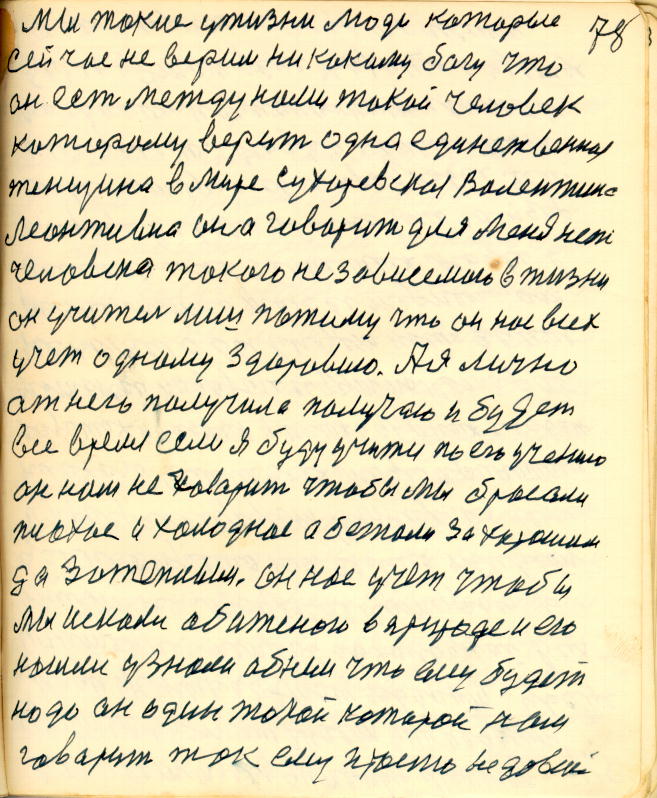 мы такие у жизни люди которые 78
сейчас не верим никакому богу что
он ест между нами такой человек
которому верит одна единственная
женщина в мире Сухаревская Валентина
Леонтивна она говорит для меня нет
человека такого независемого в жизни
он учител лиш потиму что он нас всех
учет одному здоровию. А я лично
от него получила получаю и будет
все время если я буду учити по его учению
он нам не говарит чтобы мы бросали
плохое и холодное а бежали за хорошим
да за теплым. он нас учет чтобы
мы искали абиженого в природе и его
нашли узнали абним что ему будет
надо он один такой каторой нам
говарит так ему просто не довай